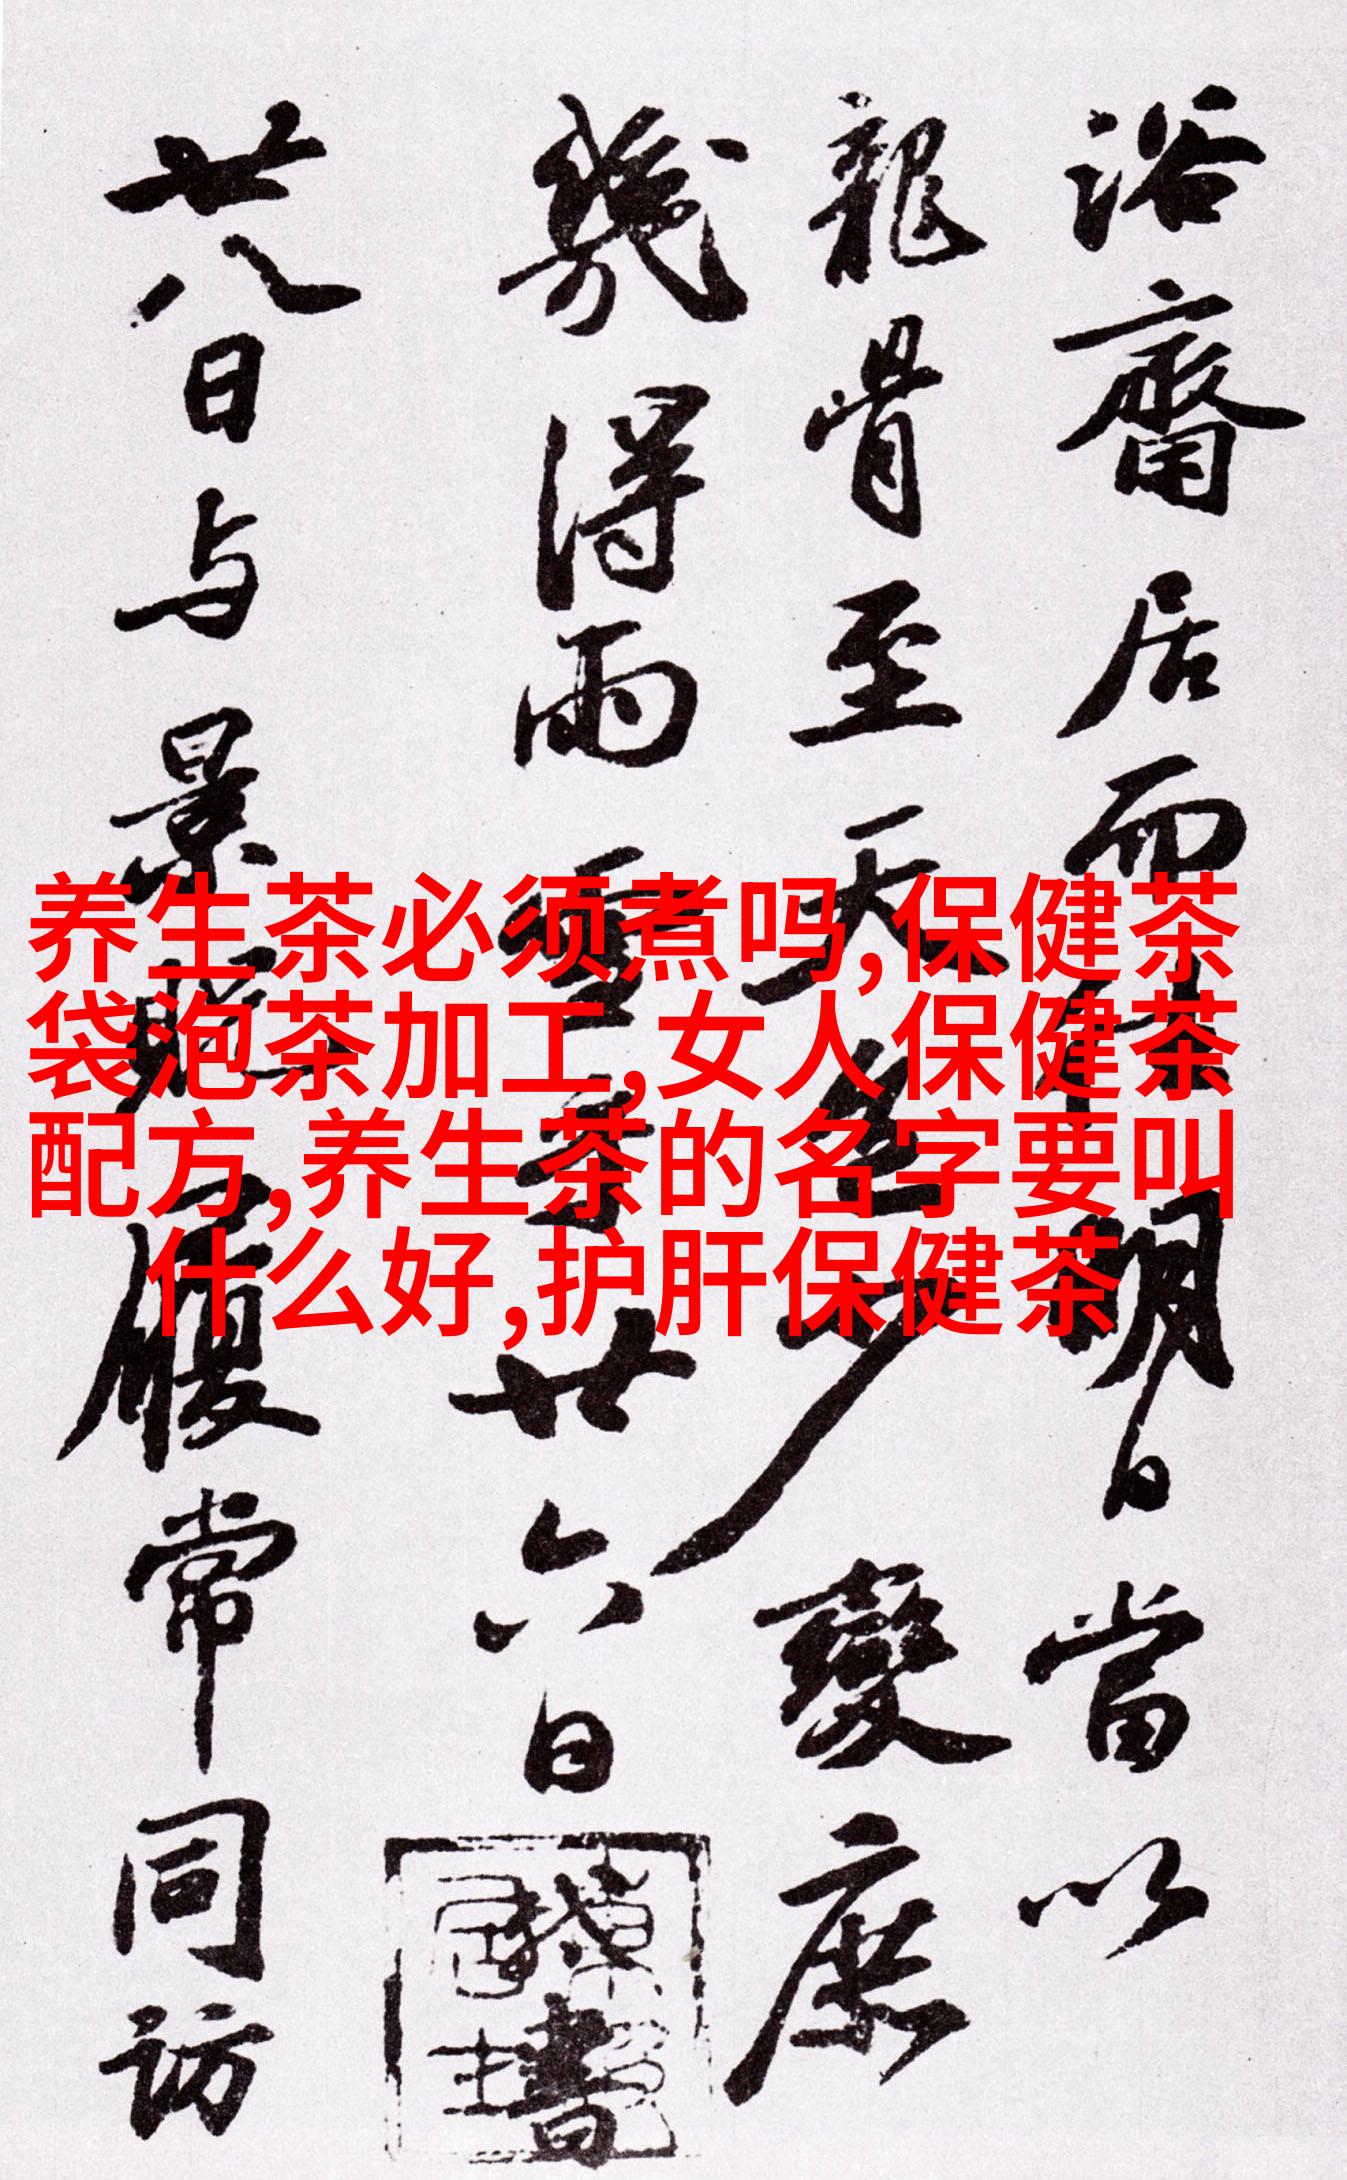 浴齋居而明日當以
龍骨至天色少變庶
幾得雨雪廿六日書
廿八日与景貺履常同訪
养生茶必须煮吗,保健茶
袋泡茶加工,女人保健茶
配方,养生茶的名字要叫
什么好,护肝保健茶